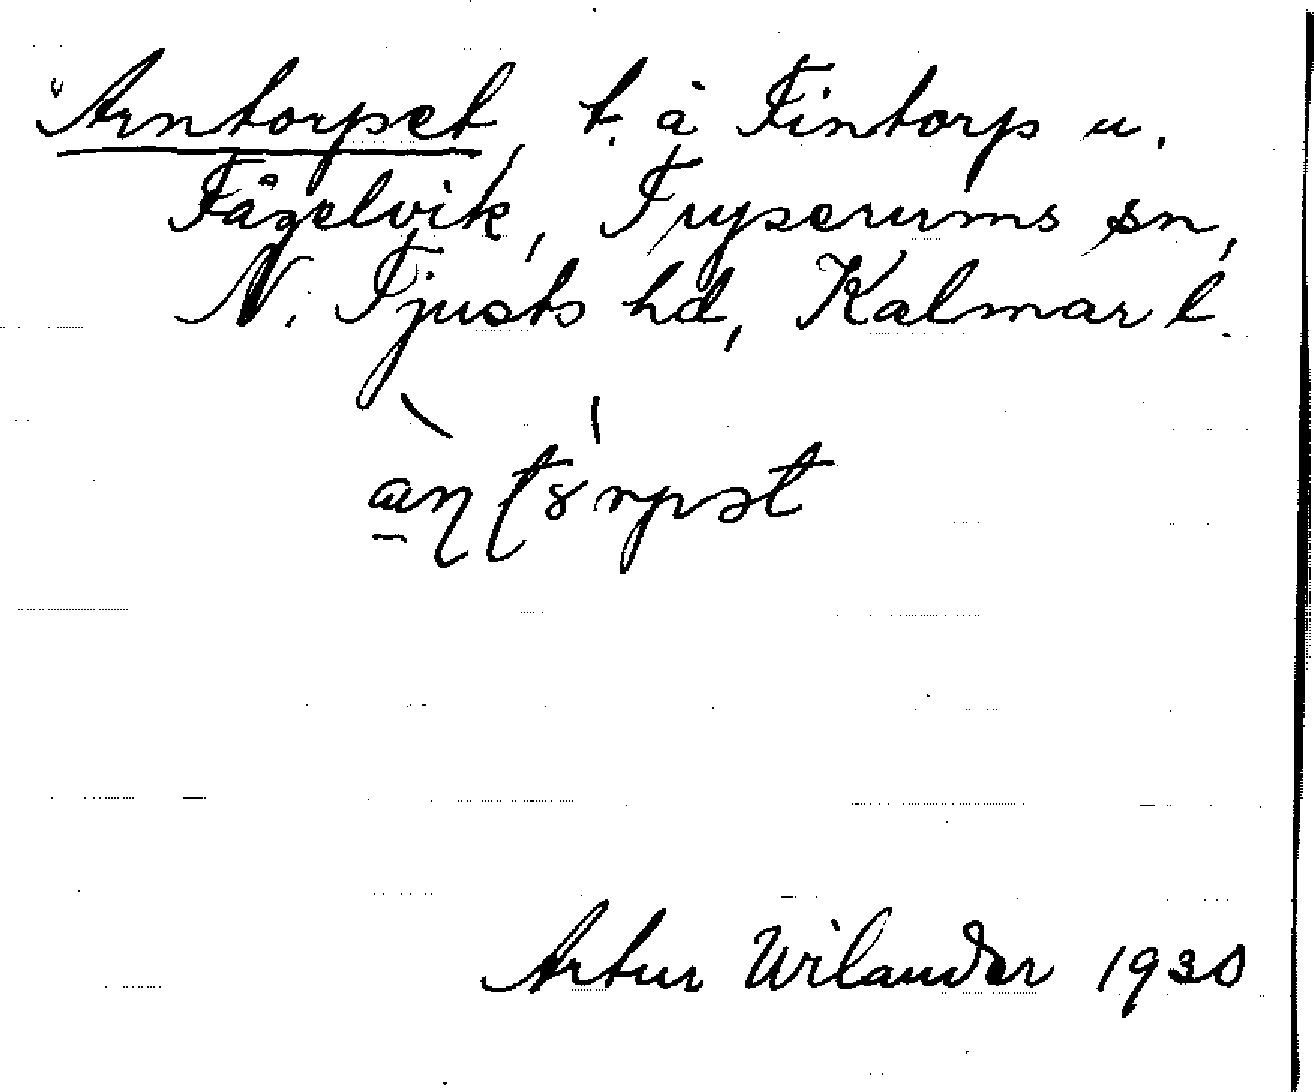 Arntorpet, t. å Fintorp u.
Fågelvik, Tryserums sn,
N. Tjusts hd, Kalmar l.
Artur Wilander 1930